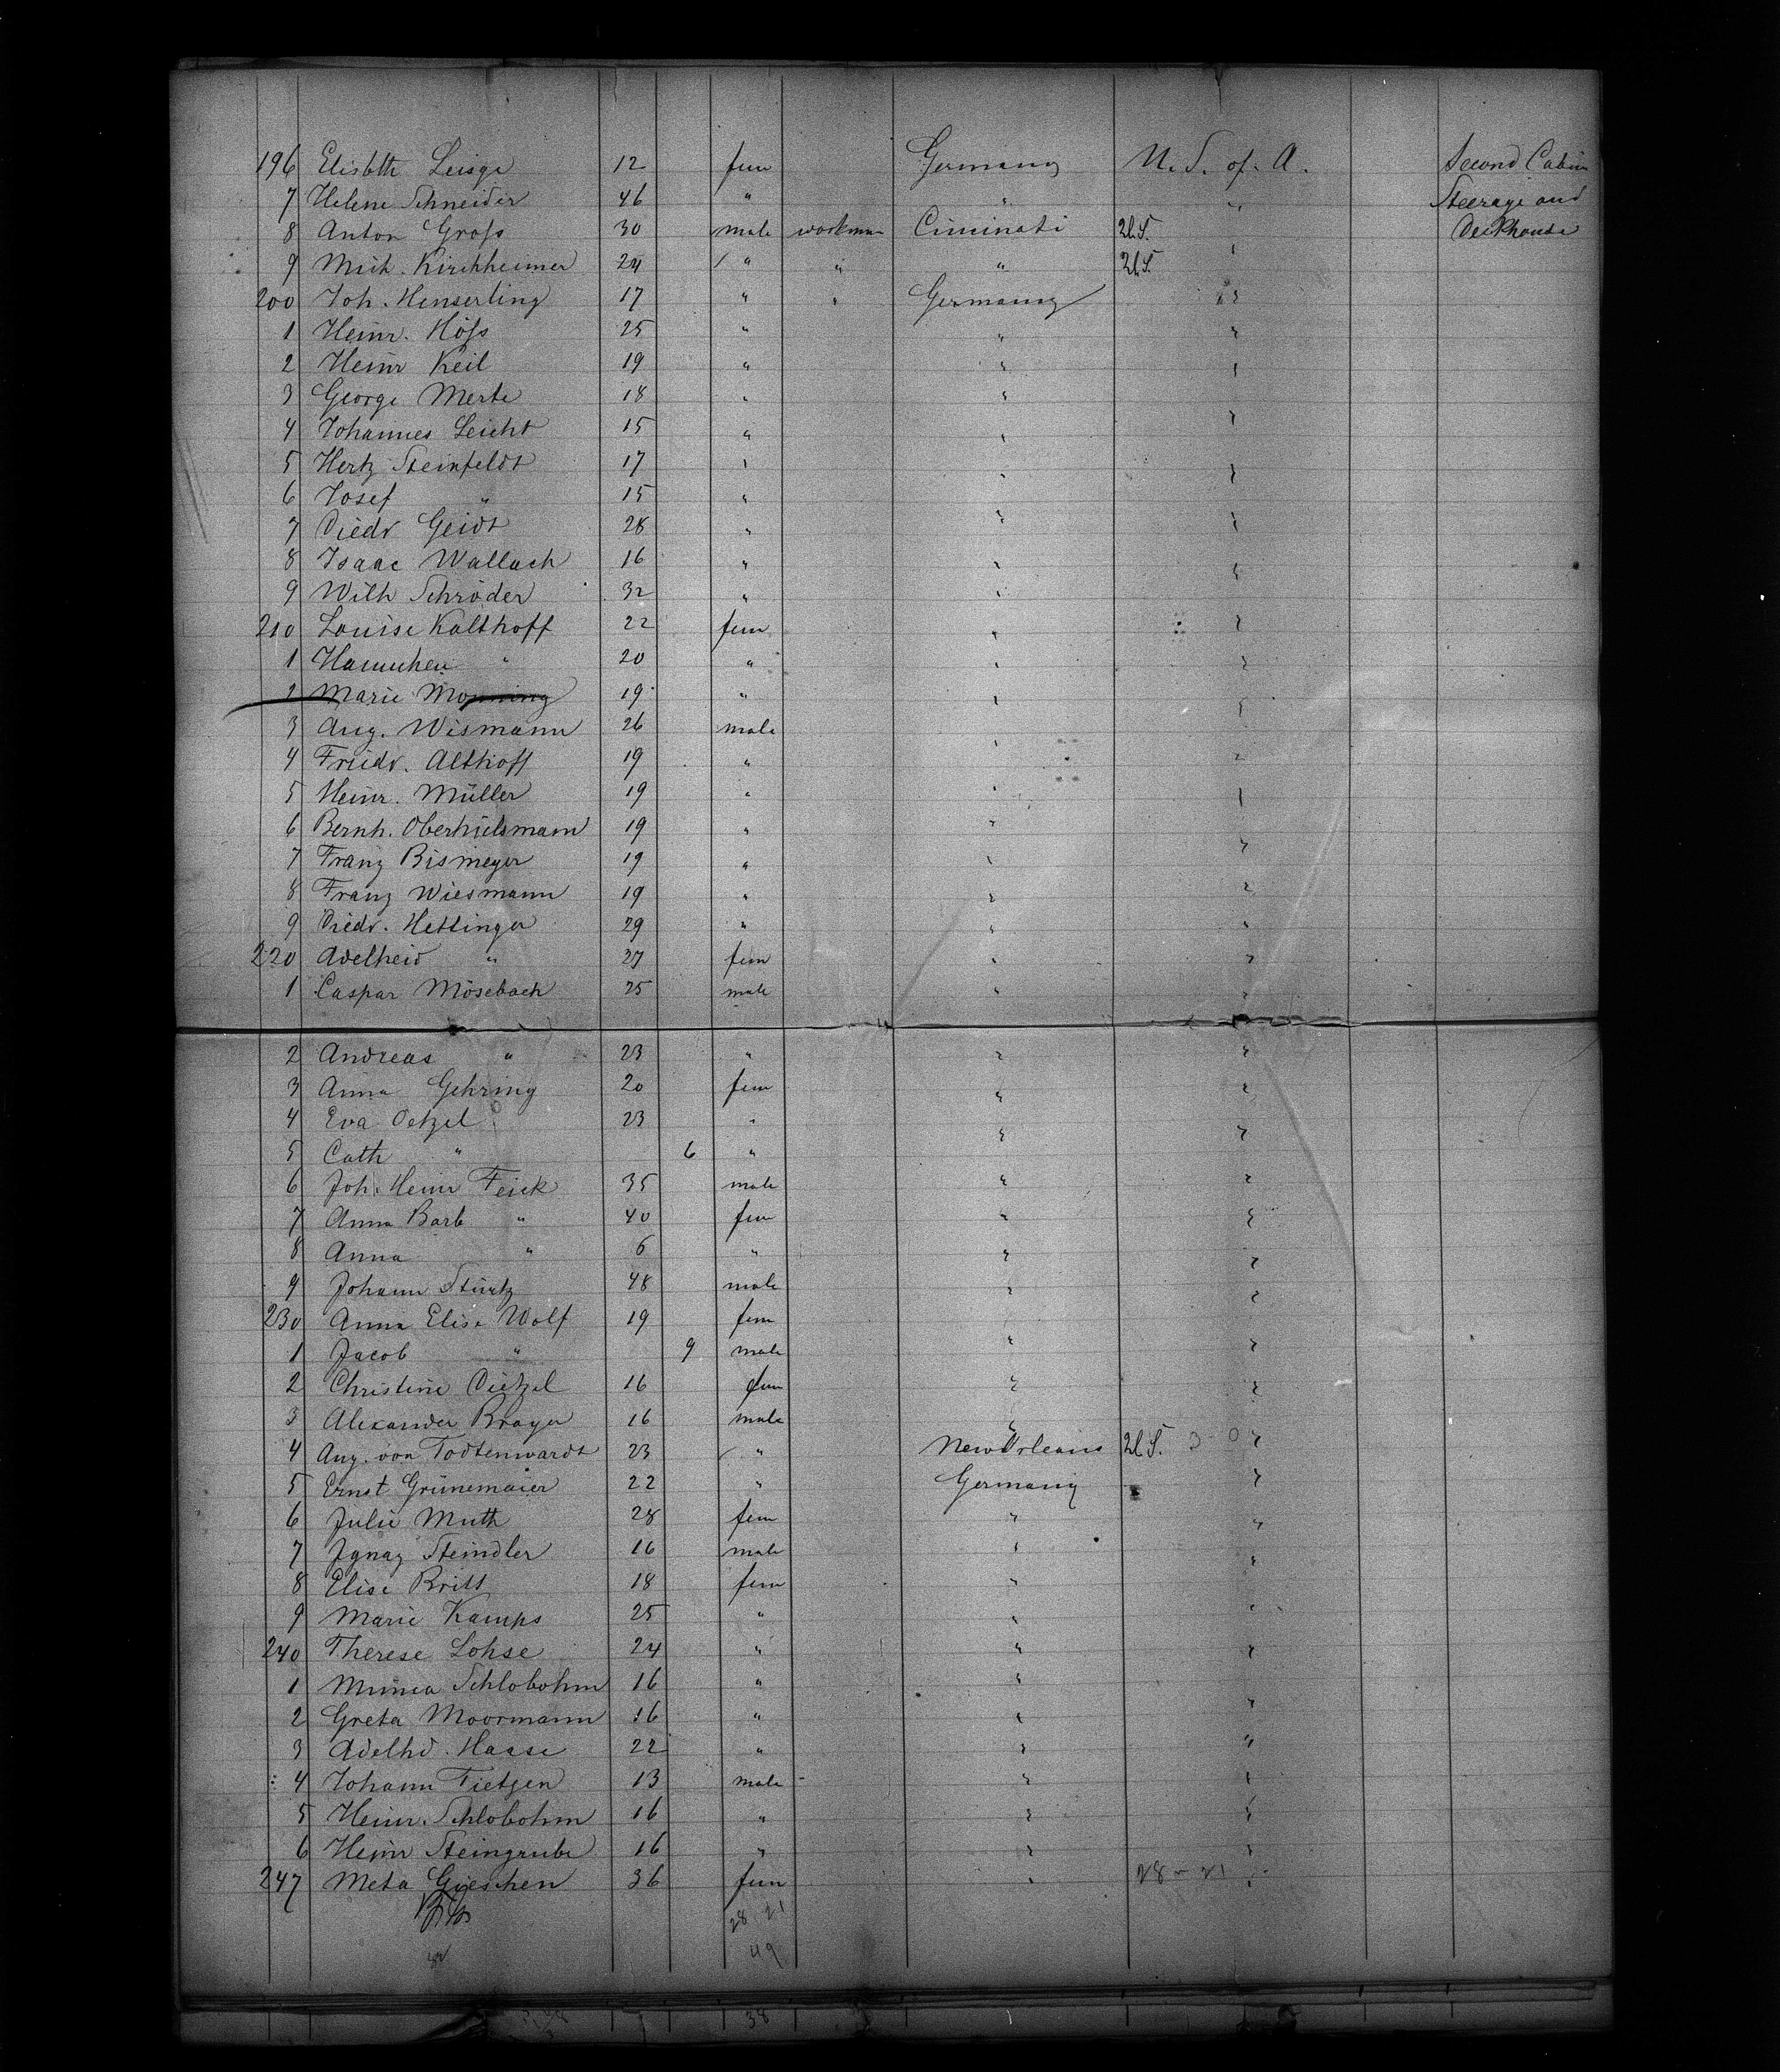 196 Elisbth Leisge 12 fem Germany U. S. of A. Second Cabin
7 Helene Schneider 46 " " " Steerage and
8 Anton Groß 30 male workman Cincinati U.S. Deckhouse
9 Mich. Kirchheimer 24 " " " U.S. "
200 Joh. Henserling 17 " " Germany "
1 Heinr. Höß 25 " " "
2 Heinr Keil 19 " " "
3 George Merte 18 " "
4 Johannes Leicht 15 " " "
5 Hertz Steinfeldt 17 " " "
6 Josef " 15 "
7 Diedr Geidt 28 " " "
8 Isaac Wallach 16 " " "
9 Wilh Schröder 32 " "
210 Louise Kalthoff 22 fem " "
1 Hannchen " 20 " " "
2 Marie Monning 19 " " "
3 Aug. Wismann 26 male
4 Friedr. Althoff 19 " " "
5 Heinr. Müller 19 " " "
6 Bernh. Oberhielsmann 19 " "
7 Franz Bismeyer 19 " " "
8 Franz Wiesmann 19 " " "
9 Diedr. Hettinger 29 " " "
220 Adelheid " 27 fem " "
1 Caspar Mösebach 25 male " "
2 Andreas " 23 " " "
3 Anna Gehring 20 fem " "
4 Eva Oetzel 23 " " "
5 Cath " 6 "
6 Joh. Heinr Feick 35 male " "
7 Anna Barb " 40 fem " "
8 Anna " 6 " " "
9 Johann Stürtz 48 male " "
230 Anna Elise Wolf 19 fem
1 Jacob " 9 male " "
2 Christine Dietzel 16 fem " "
3 Alexander Brayer 16 male "
4 Aug. von Todtenwardt 23 " New Orleans U.S. "
5 Ernst Grünemaier 22 " Germany "
6 Julie Muth 28 fem " "
7 Ignaz Steindler 16 male " "
8 Elise Britt 18 fem "
9 Marie Kamps 25 " " "
240 Therese Lohse 24 " " "
1 Minna Schlobohm 16 " "
2 Greta Moormann 16 " " "
3 Adelhd. Haase 22 " " "
4 Johann Tietjen 13 male " "
5 Heinr. Schlobohm 16 " " "
6 Heinr Steingrube 16 " " "
247 Meta Gieschen 36 fem " 28 - 21
28 21
49
38